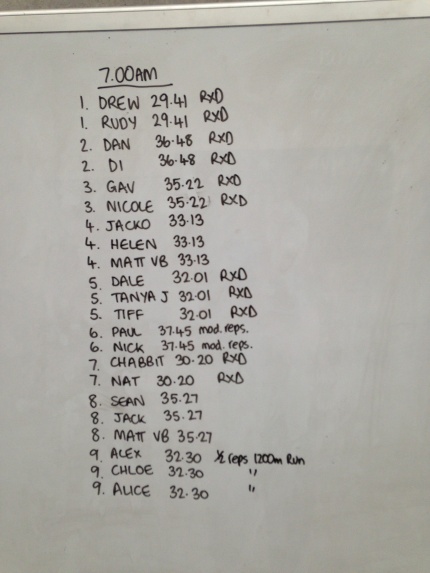 7.00AM
1. DREW 29.41 RXD
1. RUDY 29.41 RXD
2. DAN 36.48 RXD
2. DI 36.48 RXD
3. GAV 35.22 RXD
3. NICOLE 35.22 RXD
4. JACKO 33.13
4. HELEN 33.13
4. MATT VB 33.13
5. DALE 32.01 RXD
5. TANYA J 32.01 RXD
5. TIFF 32.01 RXD
6. PAUL 37.45 mod. reps.
6. NICK 37.45 mod. reps.
7. CHABBIT 30.20 RXD
7. NAT 30.20 RXD
8. SEAN 35.27
8. JACK 35.27
8. MATT VB 35.27
9. ALEX 32.30 ½ reps 1200m Run
9. CHLOE 32.30 "
9. ALICE 32.30 "